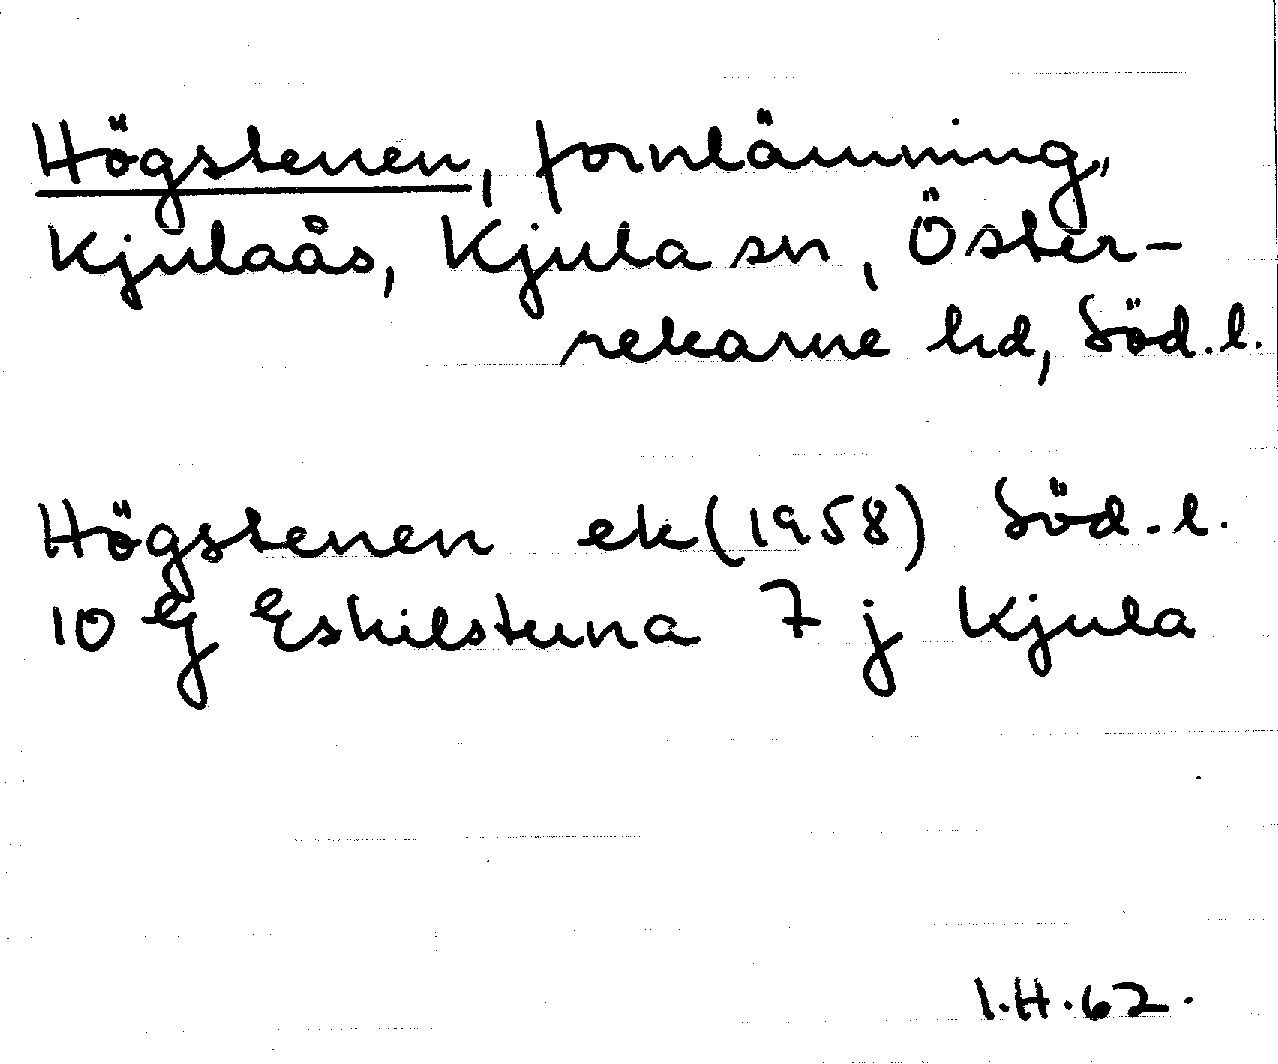 Högstenen, fornlämning,
Kjulaås, Kjula sn, Öster-
rekarne hd, Söd.l.
Högstenen ek (1958) Söd.l.
10 G Eskilstuna 7 j Kjula
I.H.62.